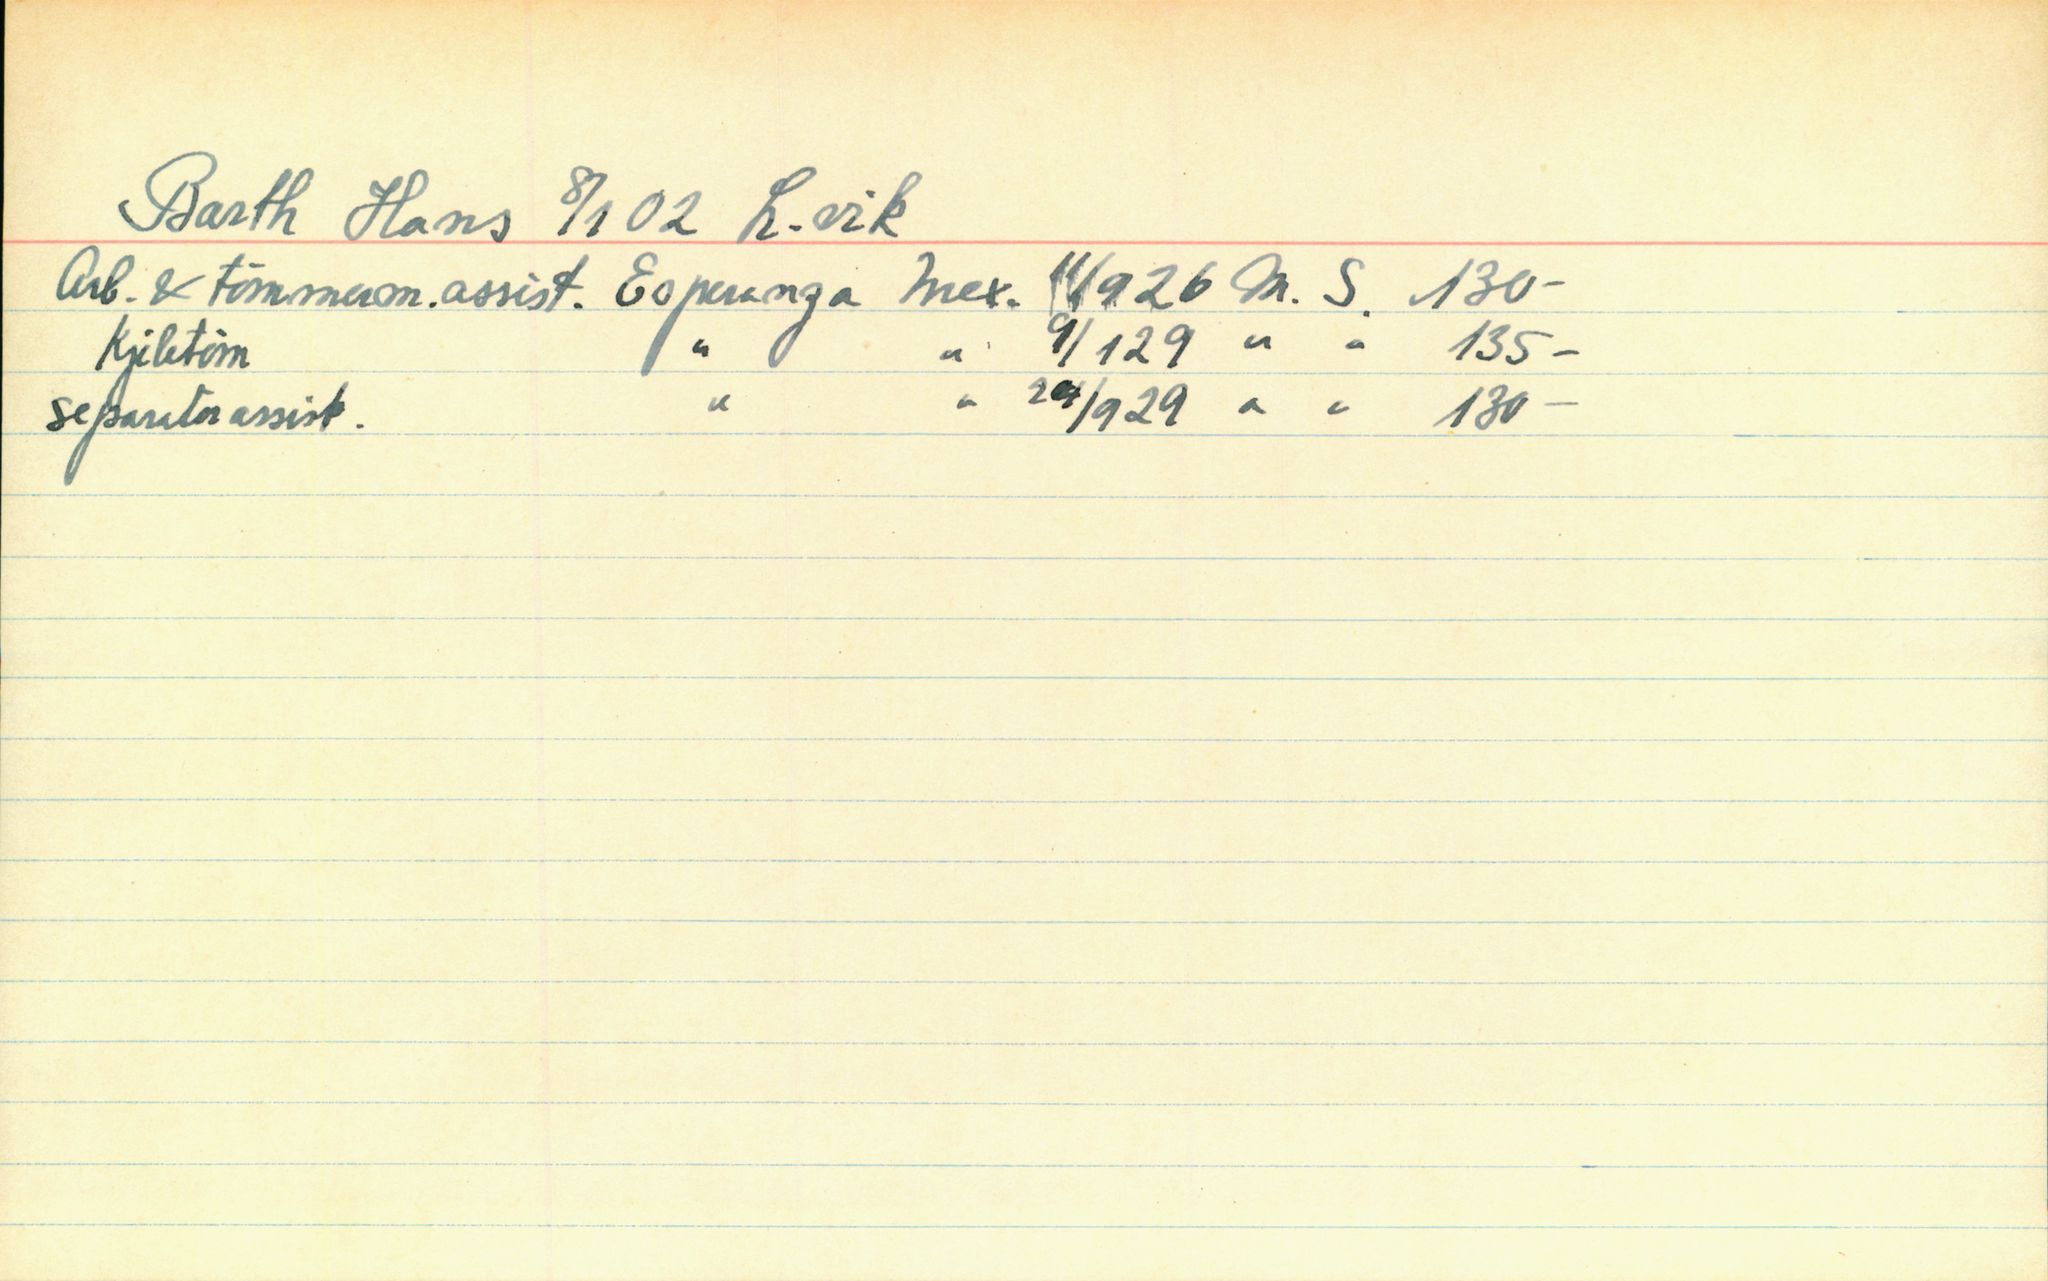 Barth Hans 8/1 02 L.vik
Arb. & tömmerm. assist. Esperanza Mex. 11/9 26 M. S. 130-
Kjeletöm " " 9/1 29 " " 135-
separator assist. " " 24/9 29 " " 130-